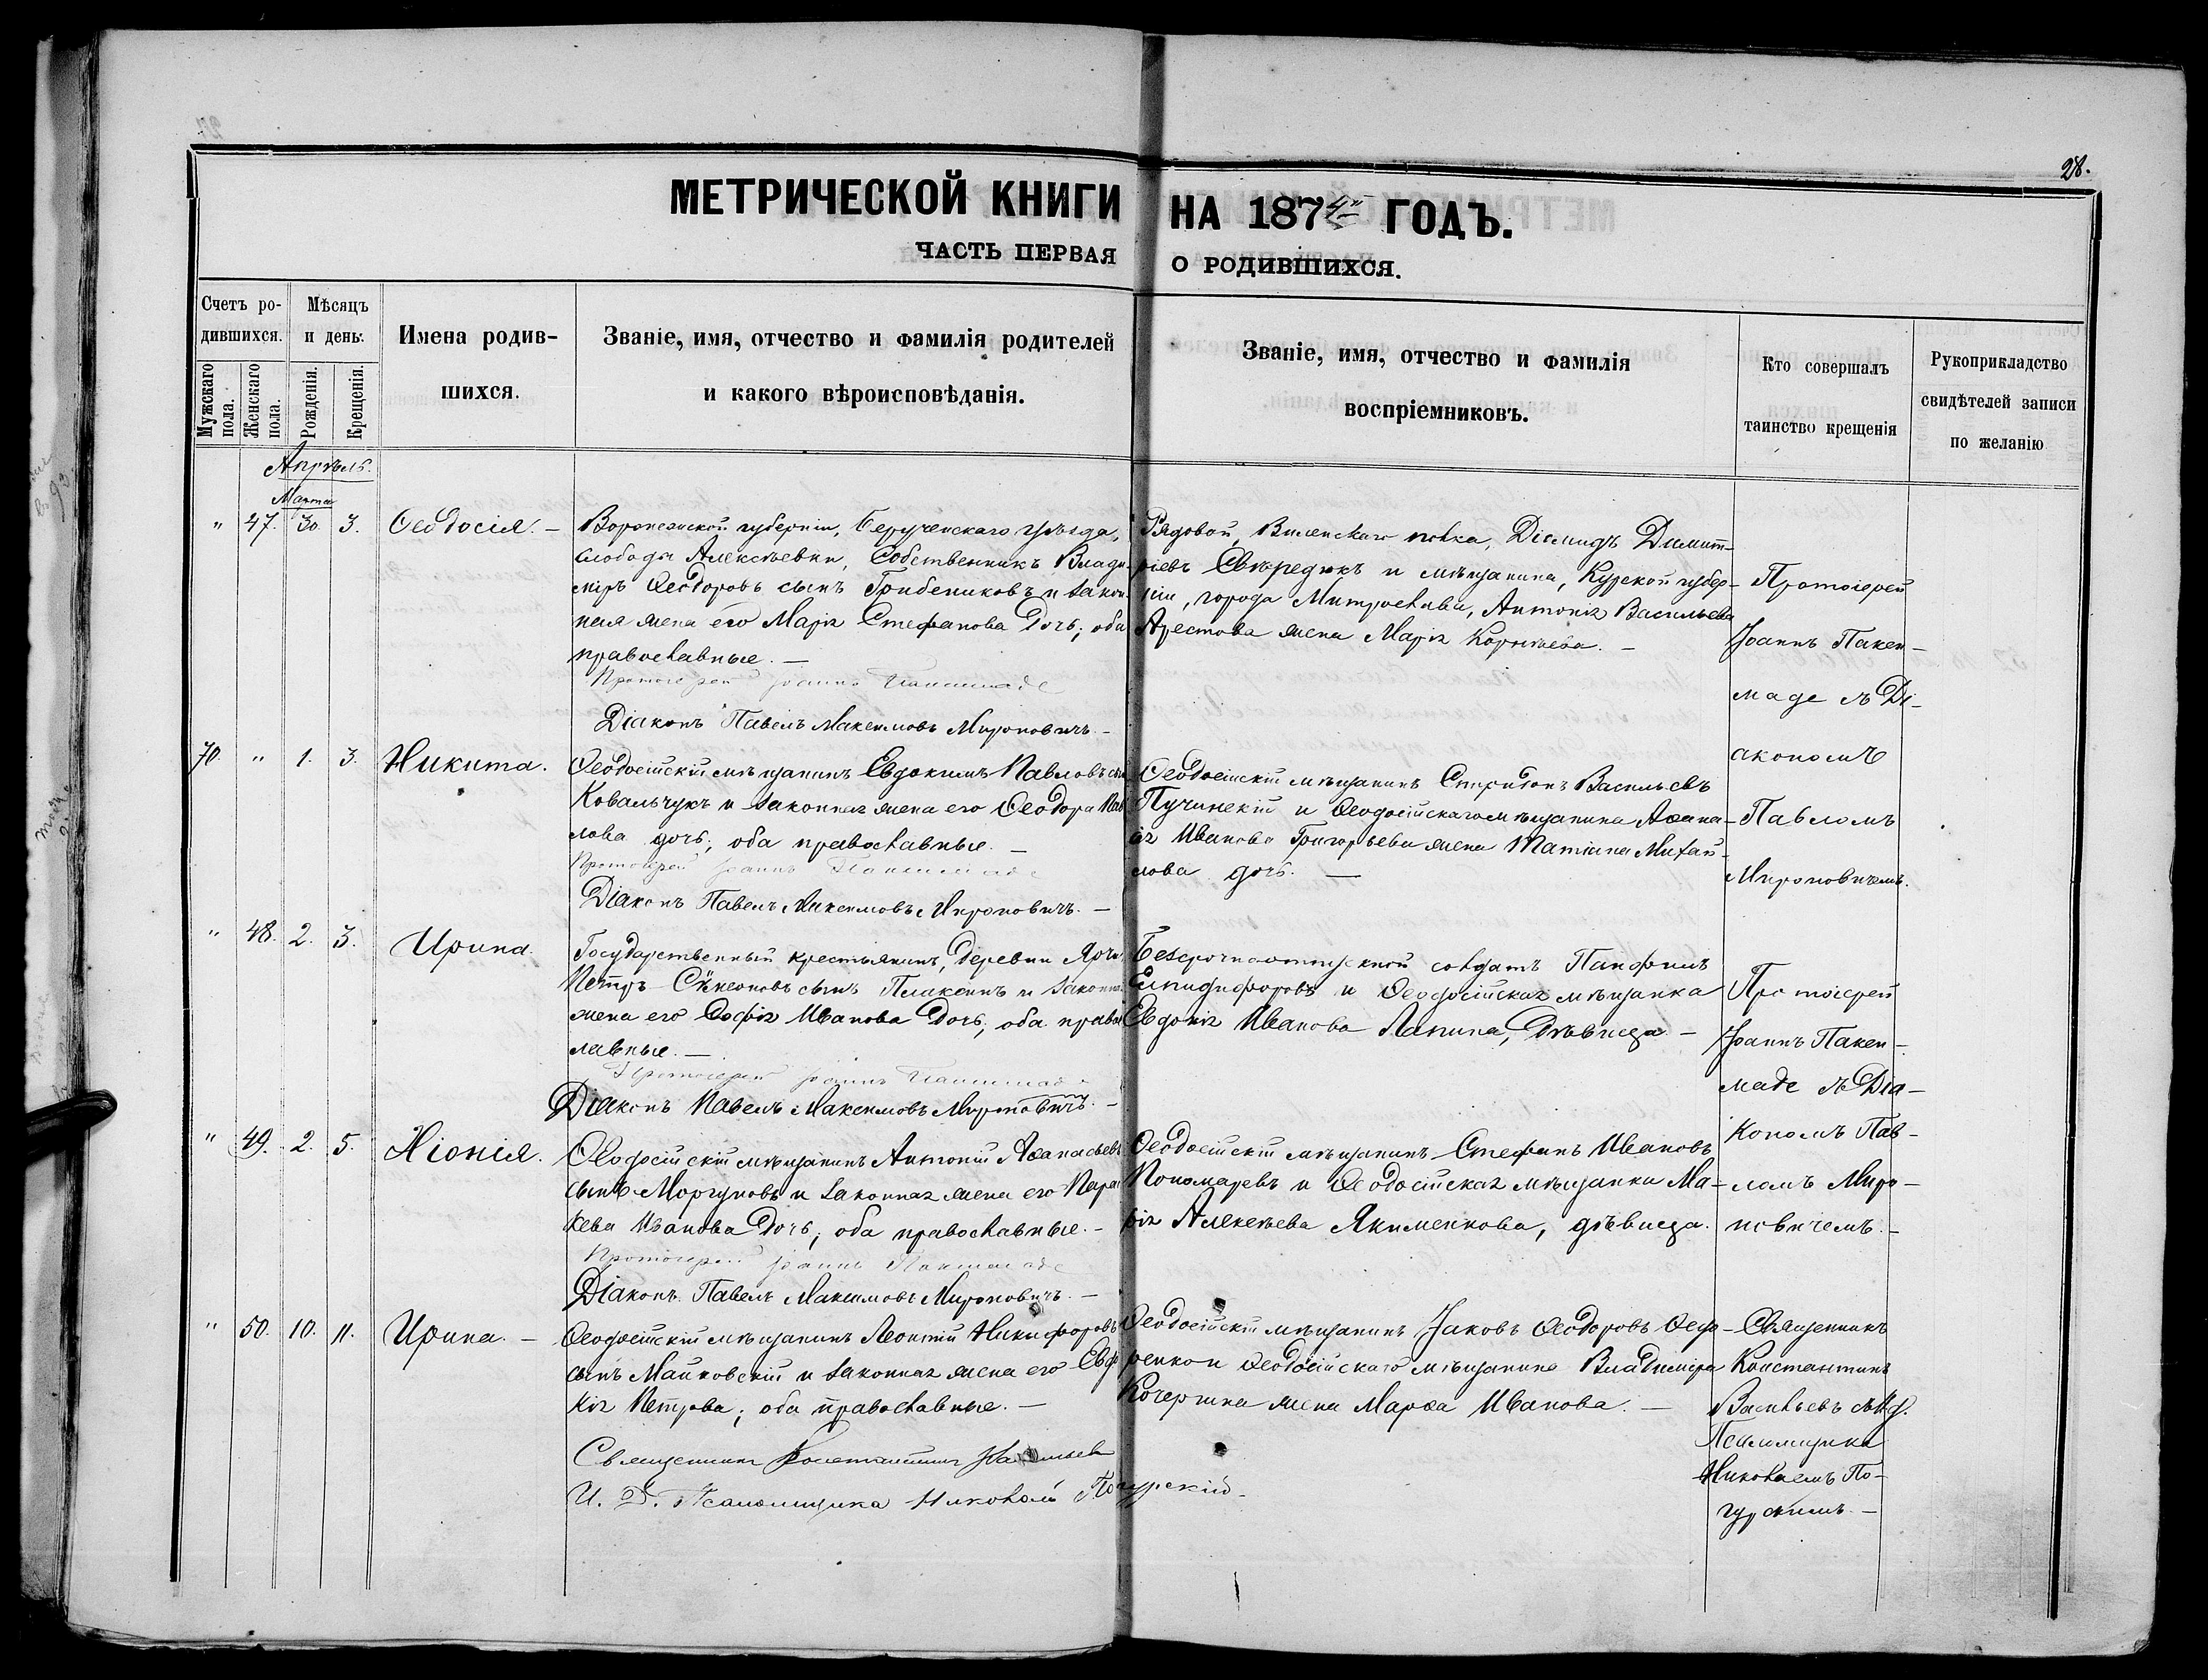 28.
МЕТРИЧЕСКОЙ КНИГИ НА 1874 ГОДЪ.
ЧАСТЬ ПЕРВАЯ О РОДИВШИХСЯ.
Счетъ ро-
дившихся.
Мужскаго пола.
Женскаго пола.
Мѣсяцъ
и день.
Рожденія.
Крещенія.
Имена родив-
шихся.
Званіе, имя, отчество и фамилія родителей
и какого вѣроисповѣданія.
Званіе, имя, отчество и фамилія
воспріемниковъ.
Кто совершалъ
таинство крещенія
Рукоприкладство
свидѣтелей записи
по желанію
Апрѣль.
Марта
" 47. 30. 3. Ѳеодосія. –
Воронежской губерніи, Бирученскаго уѣзда,
слободы Алексѣевки, Собственникъ Влади-
міръ Ѳеодоровъ сынъ Грибениковъ и закон-
ная жена его Марія Стефанова дочь; оба
православные. –
Протоіерей Іоаннъ Пакемаде
Діаконъ Павелъ Максимовъ Мироновичъ. –
Рядовой, Виленскаго полка, Діомидъ Димит-
ріевъ Свередюкъ и мѣщанина, Курской губер-
ніи, города Антонія Васильева
Арестова жена Марія Корнѣева. –
Протоіерей
Іоаннъ Пакем-
маде съ Ді-
акономъ
Павломъ
Мироновичемъ.
70. " 1. 3. Никита.
Ѳеодосійскій мѣщанинъ Евдокимъ Павловъ сынъ
Ковальчукъ и законная жена его Ѳеодора Пав-
лова дочь; оба православные. –
Протоіерей Іоаннъ Пакемаде
Діаконъ Павелъ Максимовъ Мироновичъ. –
Ѳеодосійскій мѣщанинъ Спиридонъ Васильевъ
Пучинскій и Ѳеодосійскаго мѣщанина Аѳана-
ія Иванова Григорьева жена Матіана Михай-
лова дочь. –
" 48. 2. 3. Ирина.
Государственный крестьянинъ, деревни
Петръ Сѵмеоновъ сынъ Плаксинъ и законная
жена его Софія Иванова дочь; оба правос-
лавные. –
Протоіерей Іоаннъ Пакемаде
Діаконъ Павелъ Максимовъ Мироновичъ. –
Безсрочноотпускной солдатъ Панфилъ
Епидифоровъ и Ѳеодосійская мѣщанка
Евдокія Иванова Лапина, дѣвица. –
Протоіерей
Іоаннъ Пакем-
маде съ Діа-
кономъ Пав-
ломъ Миро-
новичемъ. –
" 49. 2. 5. Ніонія.
Ѳеодосійскій мѣщанинъ Антоній Аѳанасьевъ
сынъ Моргуновъ и законная жена его Парас-
кева Иванова дочь; оба православные. –
Протоіерей Іоаннъ Пакемаде
Діаконъ Павелъ Максимовъ Мироновичъ. –
Ѳеодосійскій мѣщанинъ Стефанъ Ивановъ
Пономаревъ и Ѳеодосійская мѣщанка Ма-
рія Алексѣева Якименкова, дѣвица.
" 50. 10. 11. Ирина. –
Ѳеодосійскій мѣщанинъ Леонтій Никифоровъ
сынъ Манковскій и законная жена его Евдо-
кія Петрова; оба православные. –
Священникъ Константинъ Васильевъ
И. Д. Псаломщика Николай Погурскій.
Ѳеодосійскій мѣщанинъ Іаковъ Ѳеодоровъ Ѳедо-
ренко и Ѳеодосійскаго мѣщанина Владиміра
Кочергина жена Марѳа Иванова. –
Священникъ
Константинъ
Васильевъ съ И. д.
Псаломщика
Николаемъ По-
гурскимъ. –